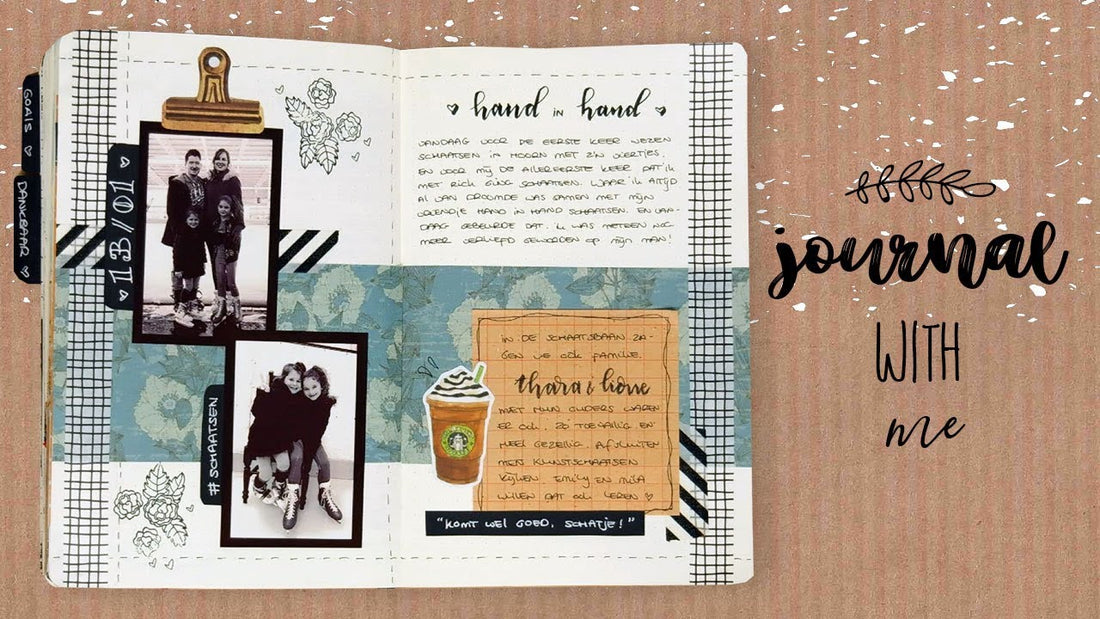 GOALS
DANKBAAR
13/01
# SCHAATSEN
hand in hand
VANDAAG VOOR DE EERSTE KEER WEZEN
SCHAATSEN IN HOORN MET Z'N VIERTJES.
EN VOOR MIJ DE ALLEREERSTE KEER DAT ik
MET RICK GING SCHAATSEN. WAAR ik ALTIJD
AL VAN DROOMDE WAS SAMEN MET MIJN
VRIENDJE HAND IN HAND SCHAATSEN. EN VAN-
DAAG GEBEURDE DAT. ik WAS METEEN NOG
MEER VERLIEFD GEWORDEN OP MIJN MAN!
IN DE SCHAATSBAAN ZA-
GEN WE OOK FAMILIE.
thara &
MET HUN OUDERS WAREN
ER OOK. ZO TOEVALLIG EN
HEEL GEZELLIG. AFSLUITEN
MEN KUNSTSCHAATSEN
KIJKEN. EMILY EN MILA
WILLEN DAT OOK LEREN
"KOMT WEL GOED, SCHATJE!"
journal
WITH
me